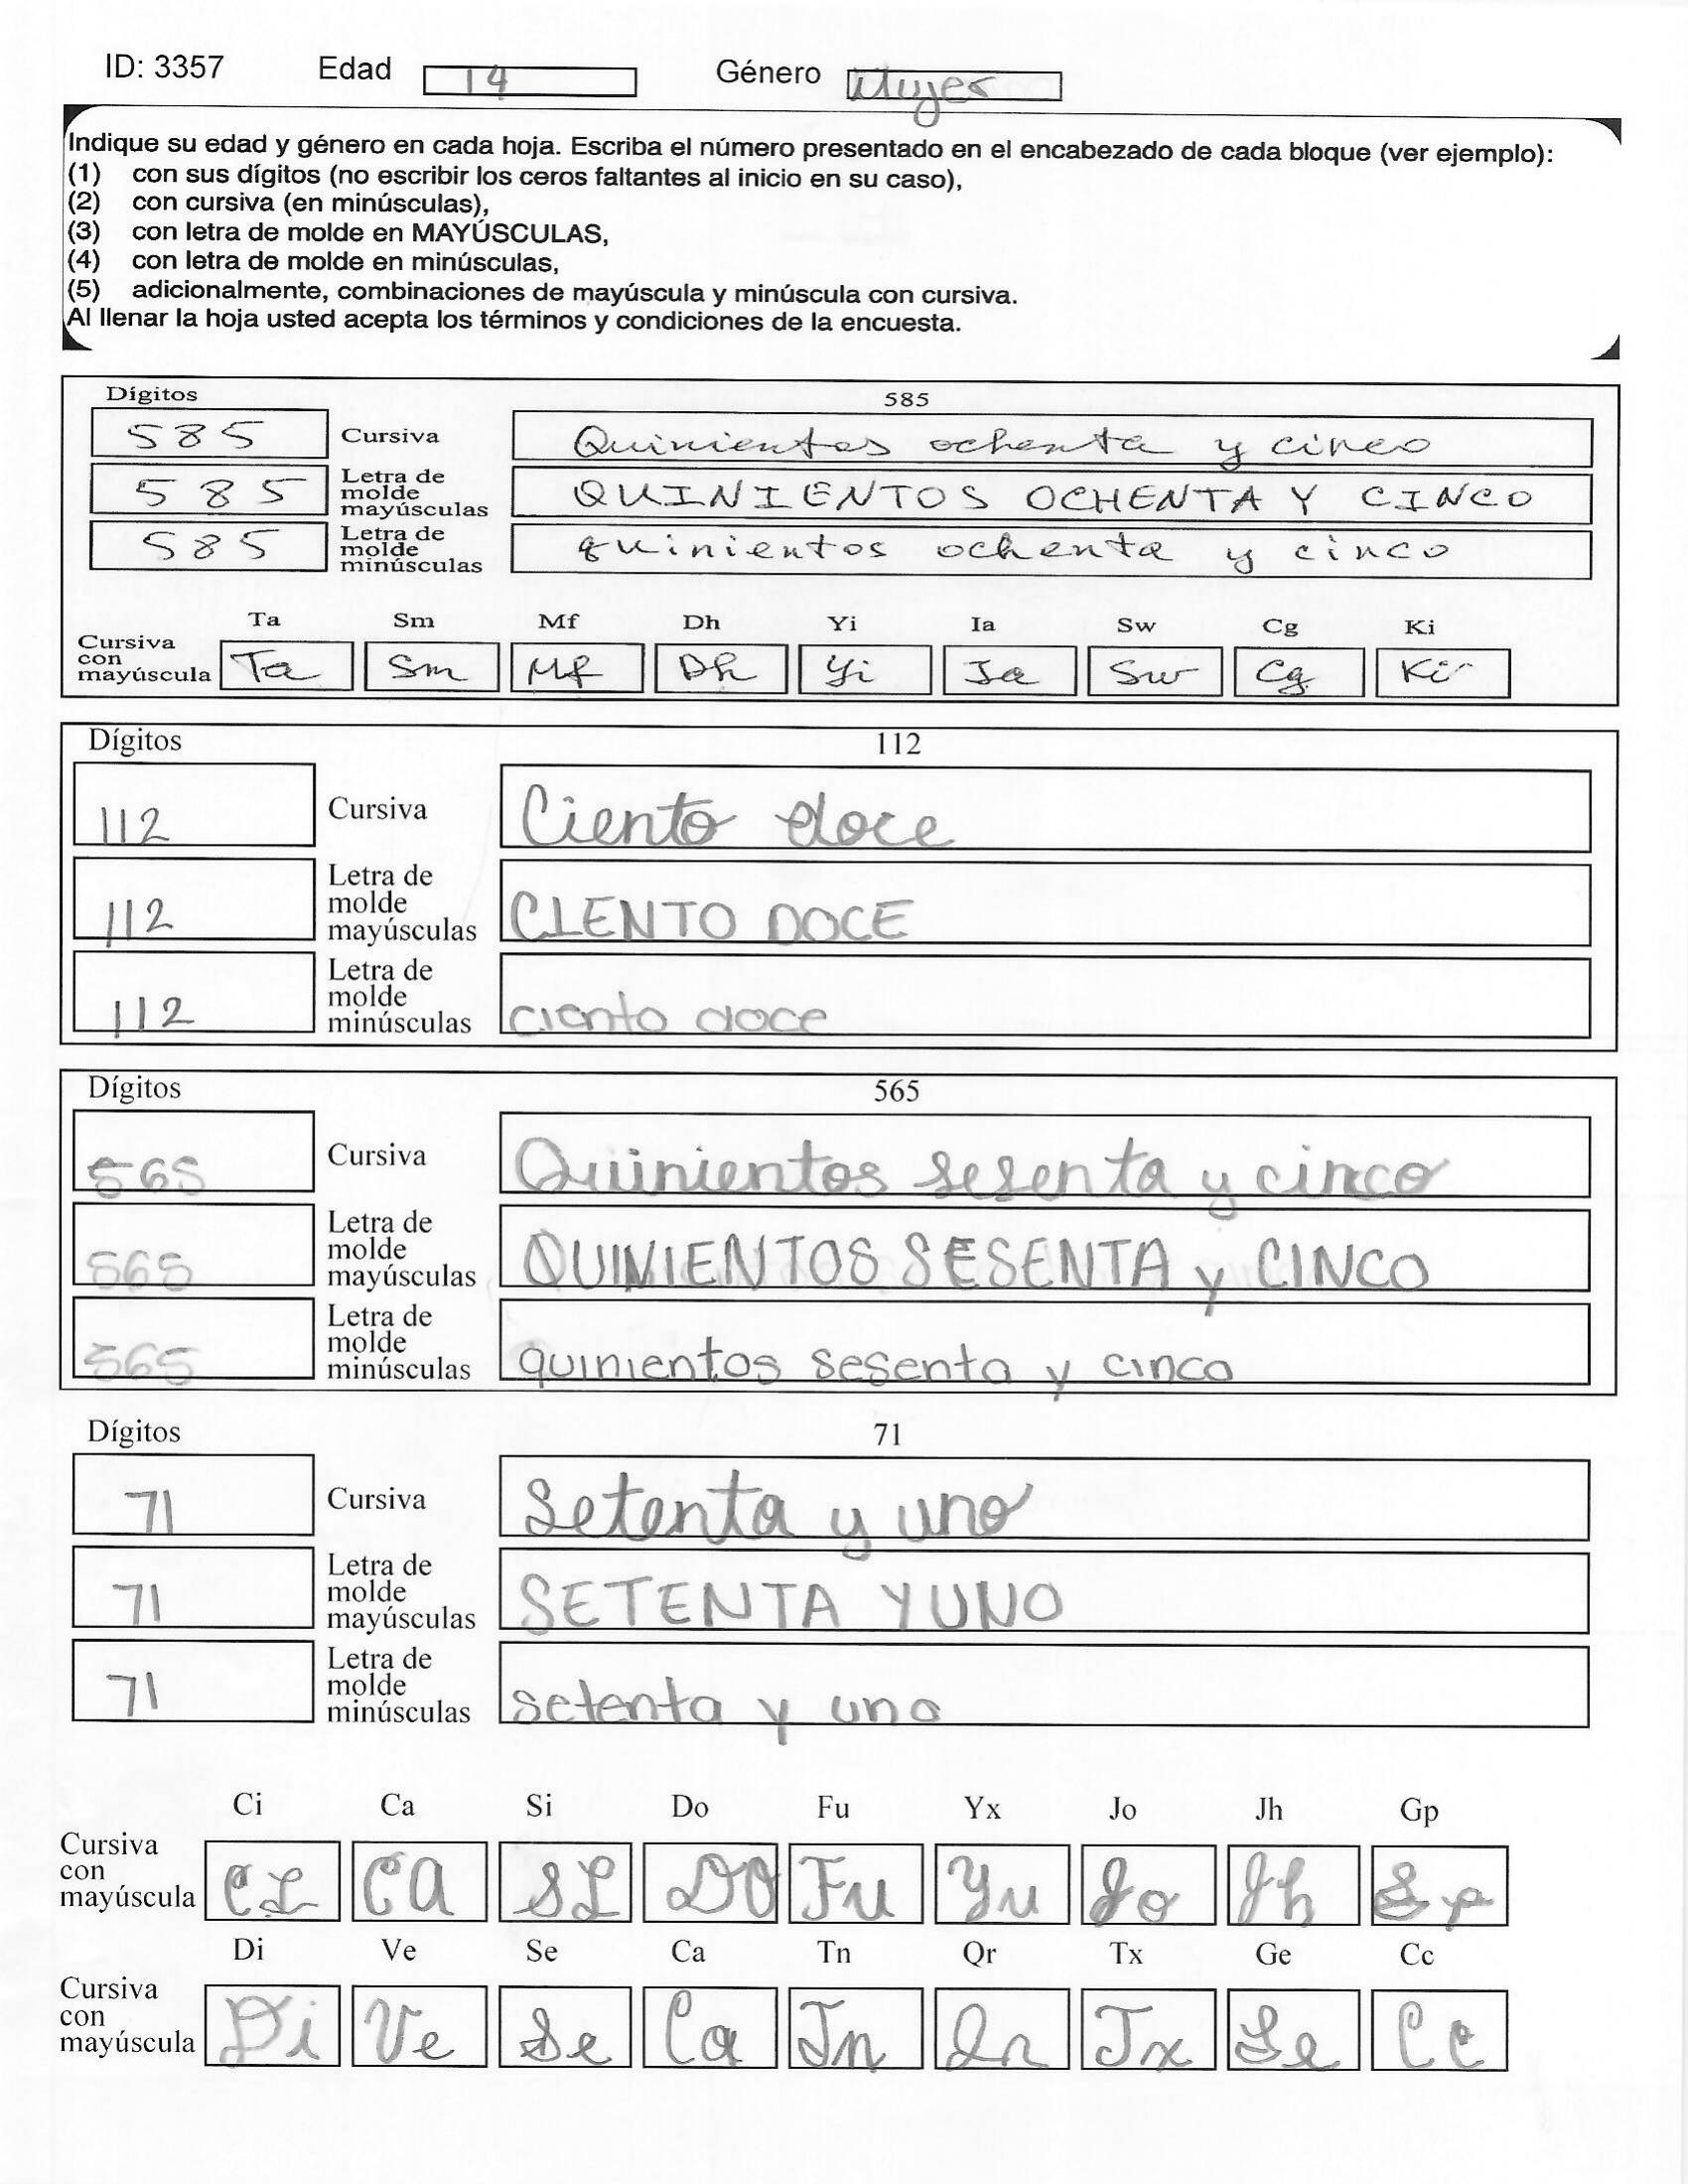 ID: 3357 Edad 14 Género Mujer
Indique su edad y género en cada hoja. Escriba el número presentado en el encabezado de cada bloque (ver ejemplo):
(1) con sus dígitos (no escribir los ceros faltantes al inicio en su caso),
(2) con cursiva (en minúsculas),
(3) con letra de molde en MAYÚSCULAS,
(4) con letra de molde en minúsculas,
(5) adicionalmente, combinaciones de mayúscula y minúscula con cursiva.
Al llenar la hoja usted acepta los términos y condiciones de la encuesta.
Dígitos 585
585 Cursiva Quinientos ochenta y cinco
585 Letra de molde mayúsculas QUINIENTOS OCHENTA Y CINCO
585 Letra de molde minúsculas quinientos ochenta y cinco
Ta Sm Mf Dh Yi Ia Sw Cg Ki
Cursiva con mayúscula Ta Sm Mf Dh Yi Ia Sw Cg Ki
Dígitos 112
112 Cursiva Ciento doce
112 Letra de molde mayúsculas CIENTO DOCE
112 Letra de molde minúsculas ciento doce
Dígitos 565
565 Cursiva Quinientos sesenta y cinco
565 Letra de molde mayúsculas QUINIENTOS SESENTA y CINCO
565 Letra de molde minúsculas quinientos sesenta y cinco
Dígitos 71
71 Cursiva Setenta y uno
71 Letra de molde mayúsculas SETENTA Y UNO
71 Letra de molde minúsculas setenta y uno
Ci Ca Si Do Fu Yx Jo Jh Gp
Cursiva con mayúscula CI CA SI DO Fu Yu Jo Jh Gp
Di Ve Se Ca Tn Qr Tx Ge Cc
Cursiva con mayúscula Di Ve Se Ca Tn Qr Tx Ge Cc